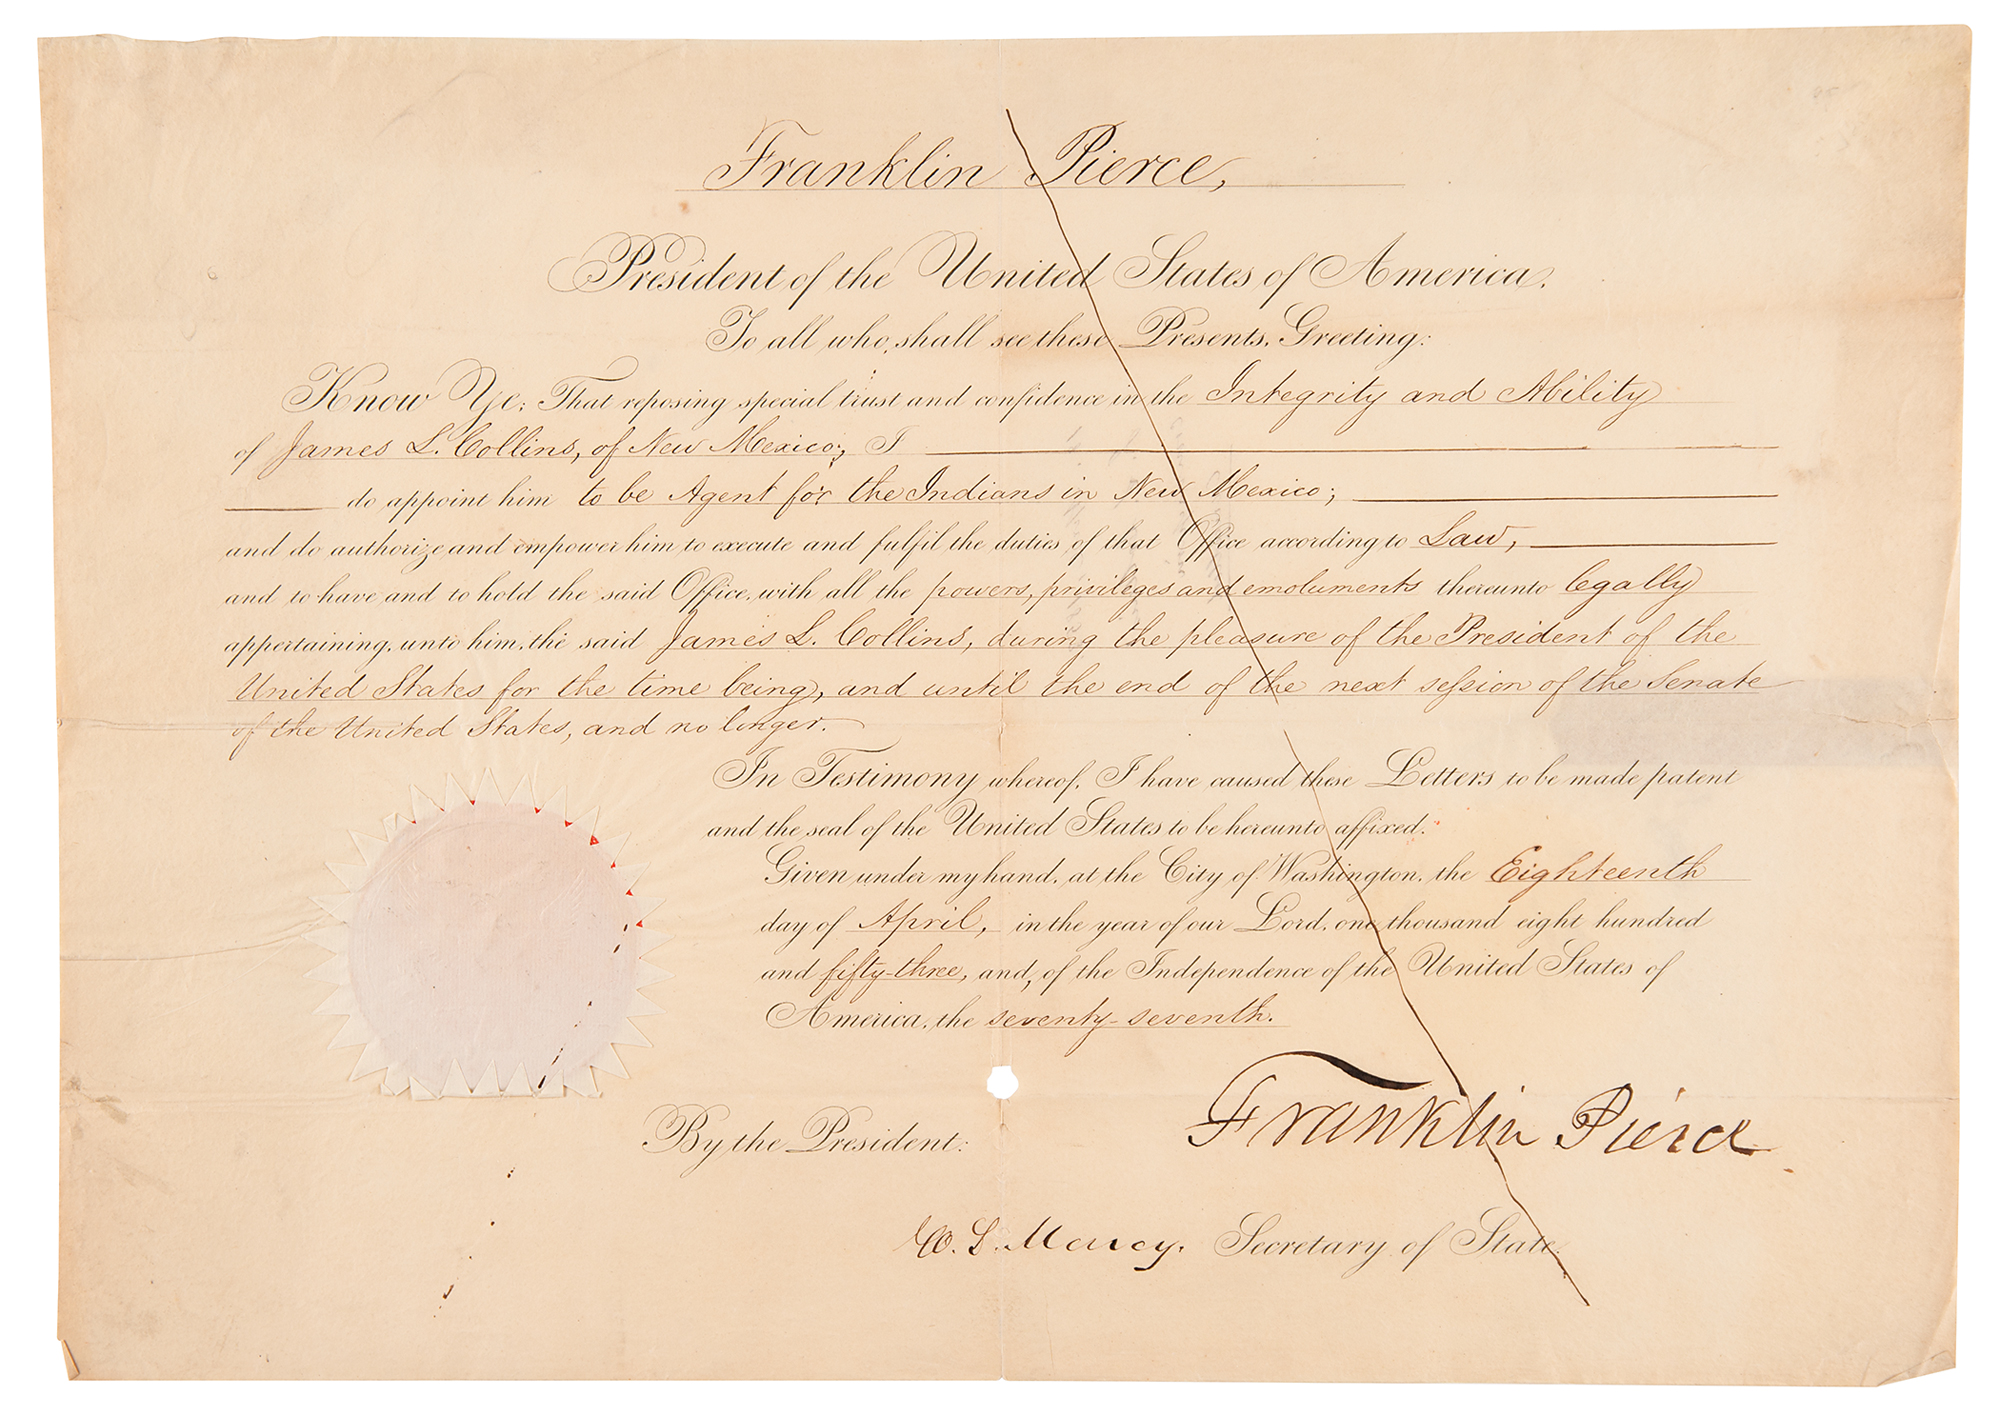 Franklin Pierce,
President of the United States of America,
To all who shall see these Presents, Greeting:
Know Ye; That reposing special trust and confidence in the Integrity and Ability
of James L. Collins, of New Mexico; I
do appoint him to be Agent for the Indians in New Mexico;
and do authorize and empower him to execute and fulfil the duties of that Office according to Law,
and to have and to hold the said Office, with all the powers, privileges and emoluments thereunto legally
appertaining, unto him, the said James L. Collins, during the pleasure of the President of the
United States for the time being, and until the end of the next session of the Senate
of the United States, and no longer.
In Testimony whereof, I have caused these Letters to be made patent
and the seal of the United States to be hereunto affixed.
Given under my hand, at the City of Washington, the Eighteenth
day of April, in the year of our Lord, one thousand eight hundred
and fifty-three, and, of the Independence of the United States of
America, the seventy-seventh.
Franklin Pierce
By the President:
W. L. Marcy, Secretary of State.